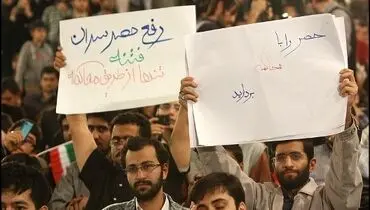 رفع حصر سران
فتنه
تنها از طریق محاکمه
حصر را با
محاکمه
بردارید